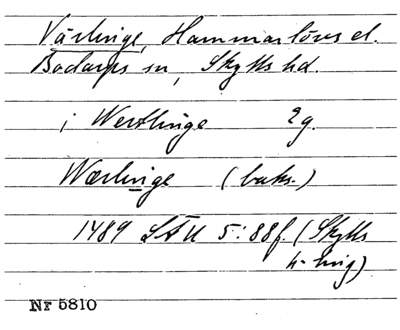 Värlinge, Hammarlövs el.
Bodarps sn, Skytts hd.
i Werthinge 2 g.
Wærlinge (baks.)
1489 LÄU 5:88f. (Skytts
h-ting)
Nr 5810